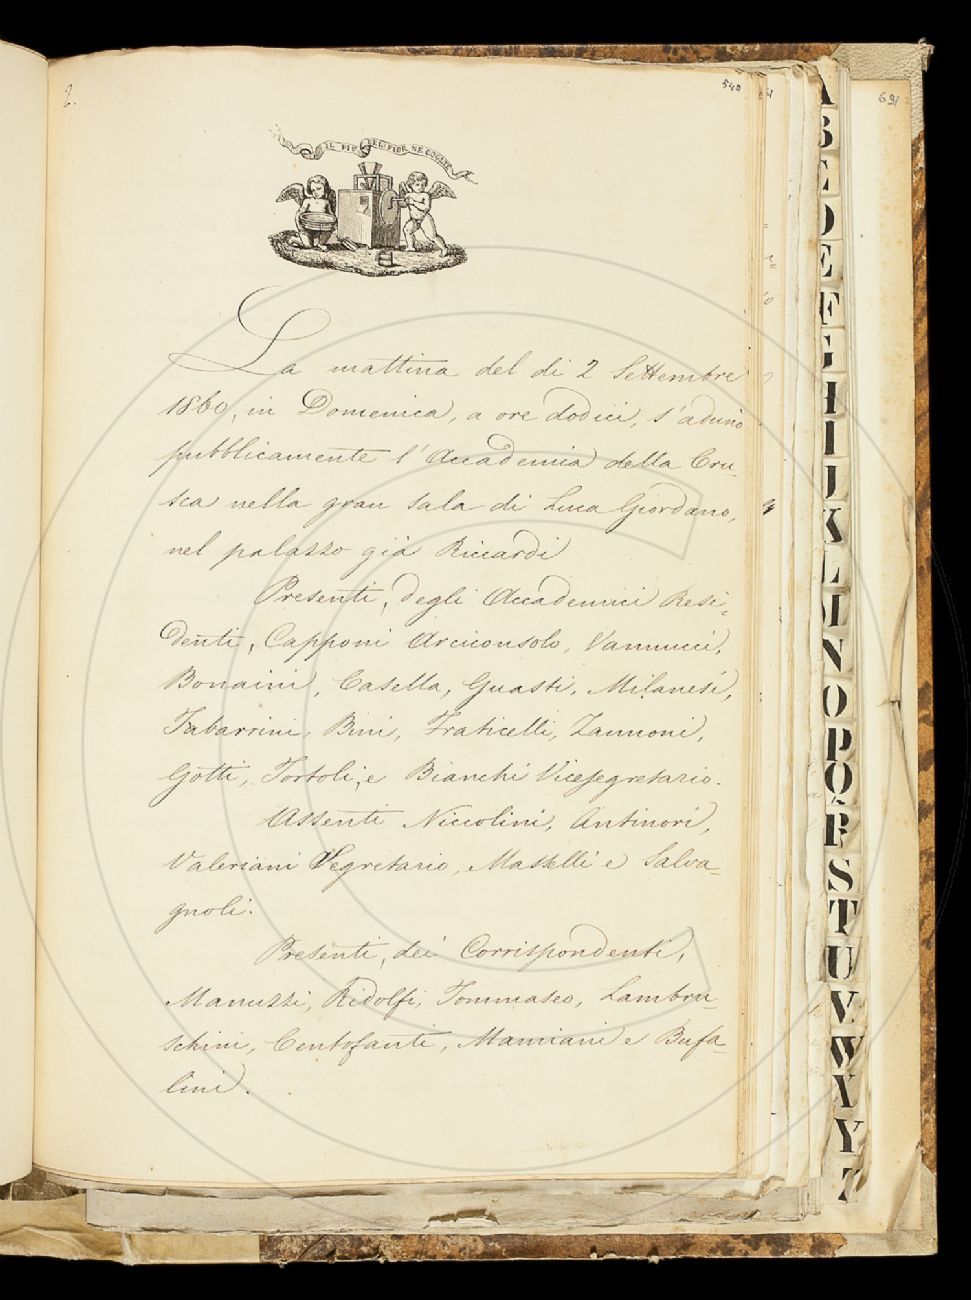 2.
540
691
IL PIÙ BEL FIOR NE COGLIE
La mattina del di 2 Settembre
1860, in Domenica, a ore dodici, s'adunò
pubblicamente l'Accademia della Cru-
sca nella gran sala di Luca Giordano,
nel palazzo già Riccardi
Presenti, degli Accademici Resi-
denti, Capponi Arciconsolo, Vannucci,
Bonaini, Casella, Guasti, Milanesi,
Tabarrini, Bini, Fraticelli, Zannoni,
Gotti, Tortoli, e Bianchi Vicesegretario.
Assenti Niccolini, Antinori,
Valeriani Segretario, Masselli e Salva-
gnoli.
Presenti, dei Corrispondenti,
Manuzzi, Ridolfi, Tommaseo, Lambru-
schini, Centofanti, Mamiani e Bufa-
lini.
A
B
C
D
E
F
G
H
I
J
K
L
M
N
O
P
Q
R
S
T
U
V
W
X
Y
Z